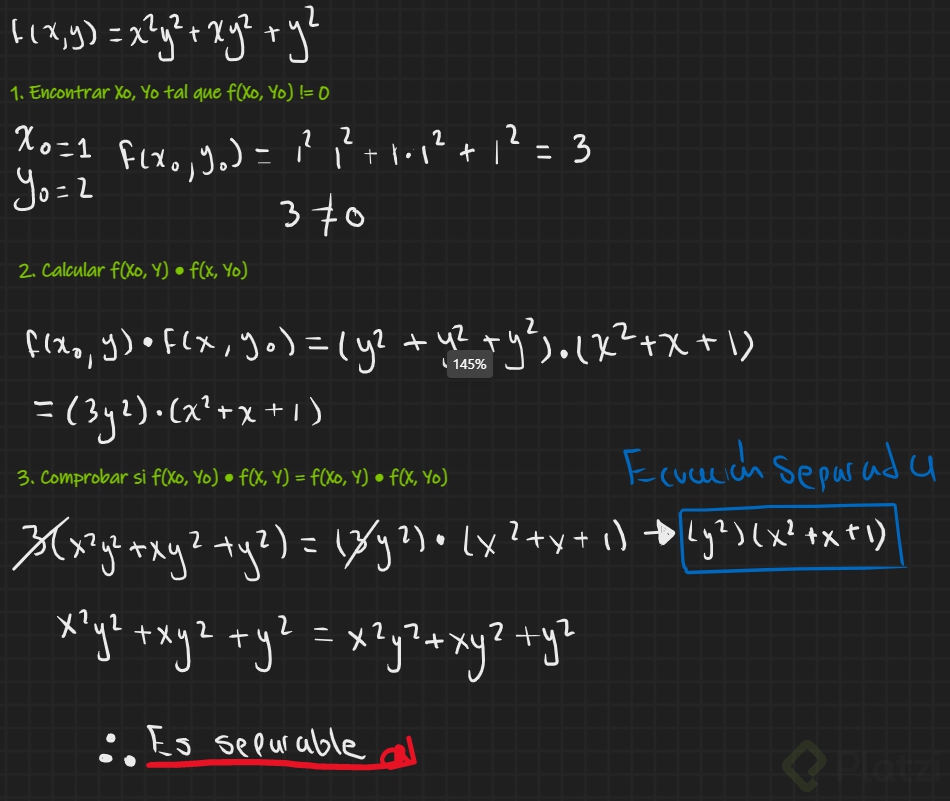 f(x,y) = x²y² + xy² + y²
1. Encontrar Xo, Yo tal que f(Xo, Yo) != 0
x₀=1 f(x₀,y₀) = 1² 1² + 1·1² + 1² = 3
y₀=2
3 ≠ 0
2. Calcular f(Xo, Y) • f(x, Yo)
f(x₀,y)•f(x,y₀) = (y² + y² + y²)•(x²+x+1)
145%
= (3y²)·(x²+x+1)
3. Comprobar si f(Xo, Yo) • f(X, Y) = f(Xo, Y) • f(X, Yo)
Ecuación Separada
3(x²y²+xy²+y²) = (3y²)•(x²+x+1) → (y²)(x²+x+1)
x²y²+xy²+y² = x²y²+xy²+y²
∴ Es separable
Platzi